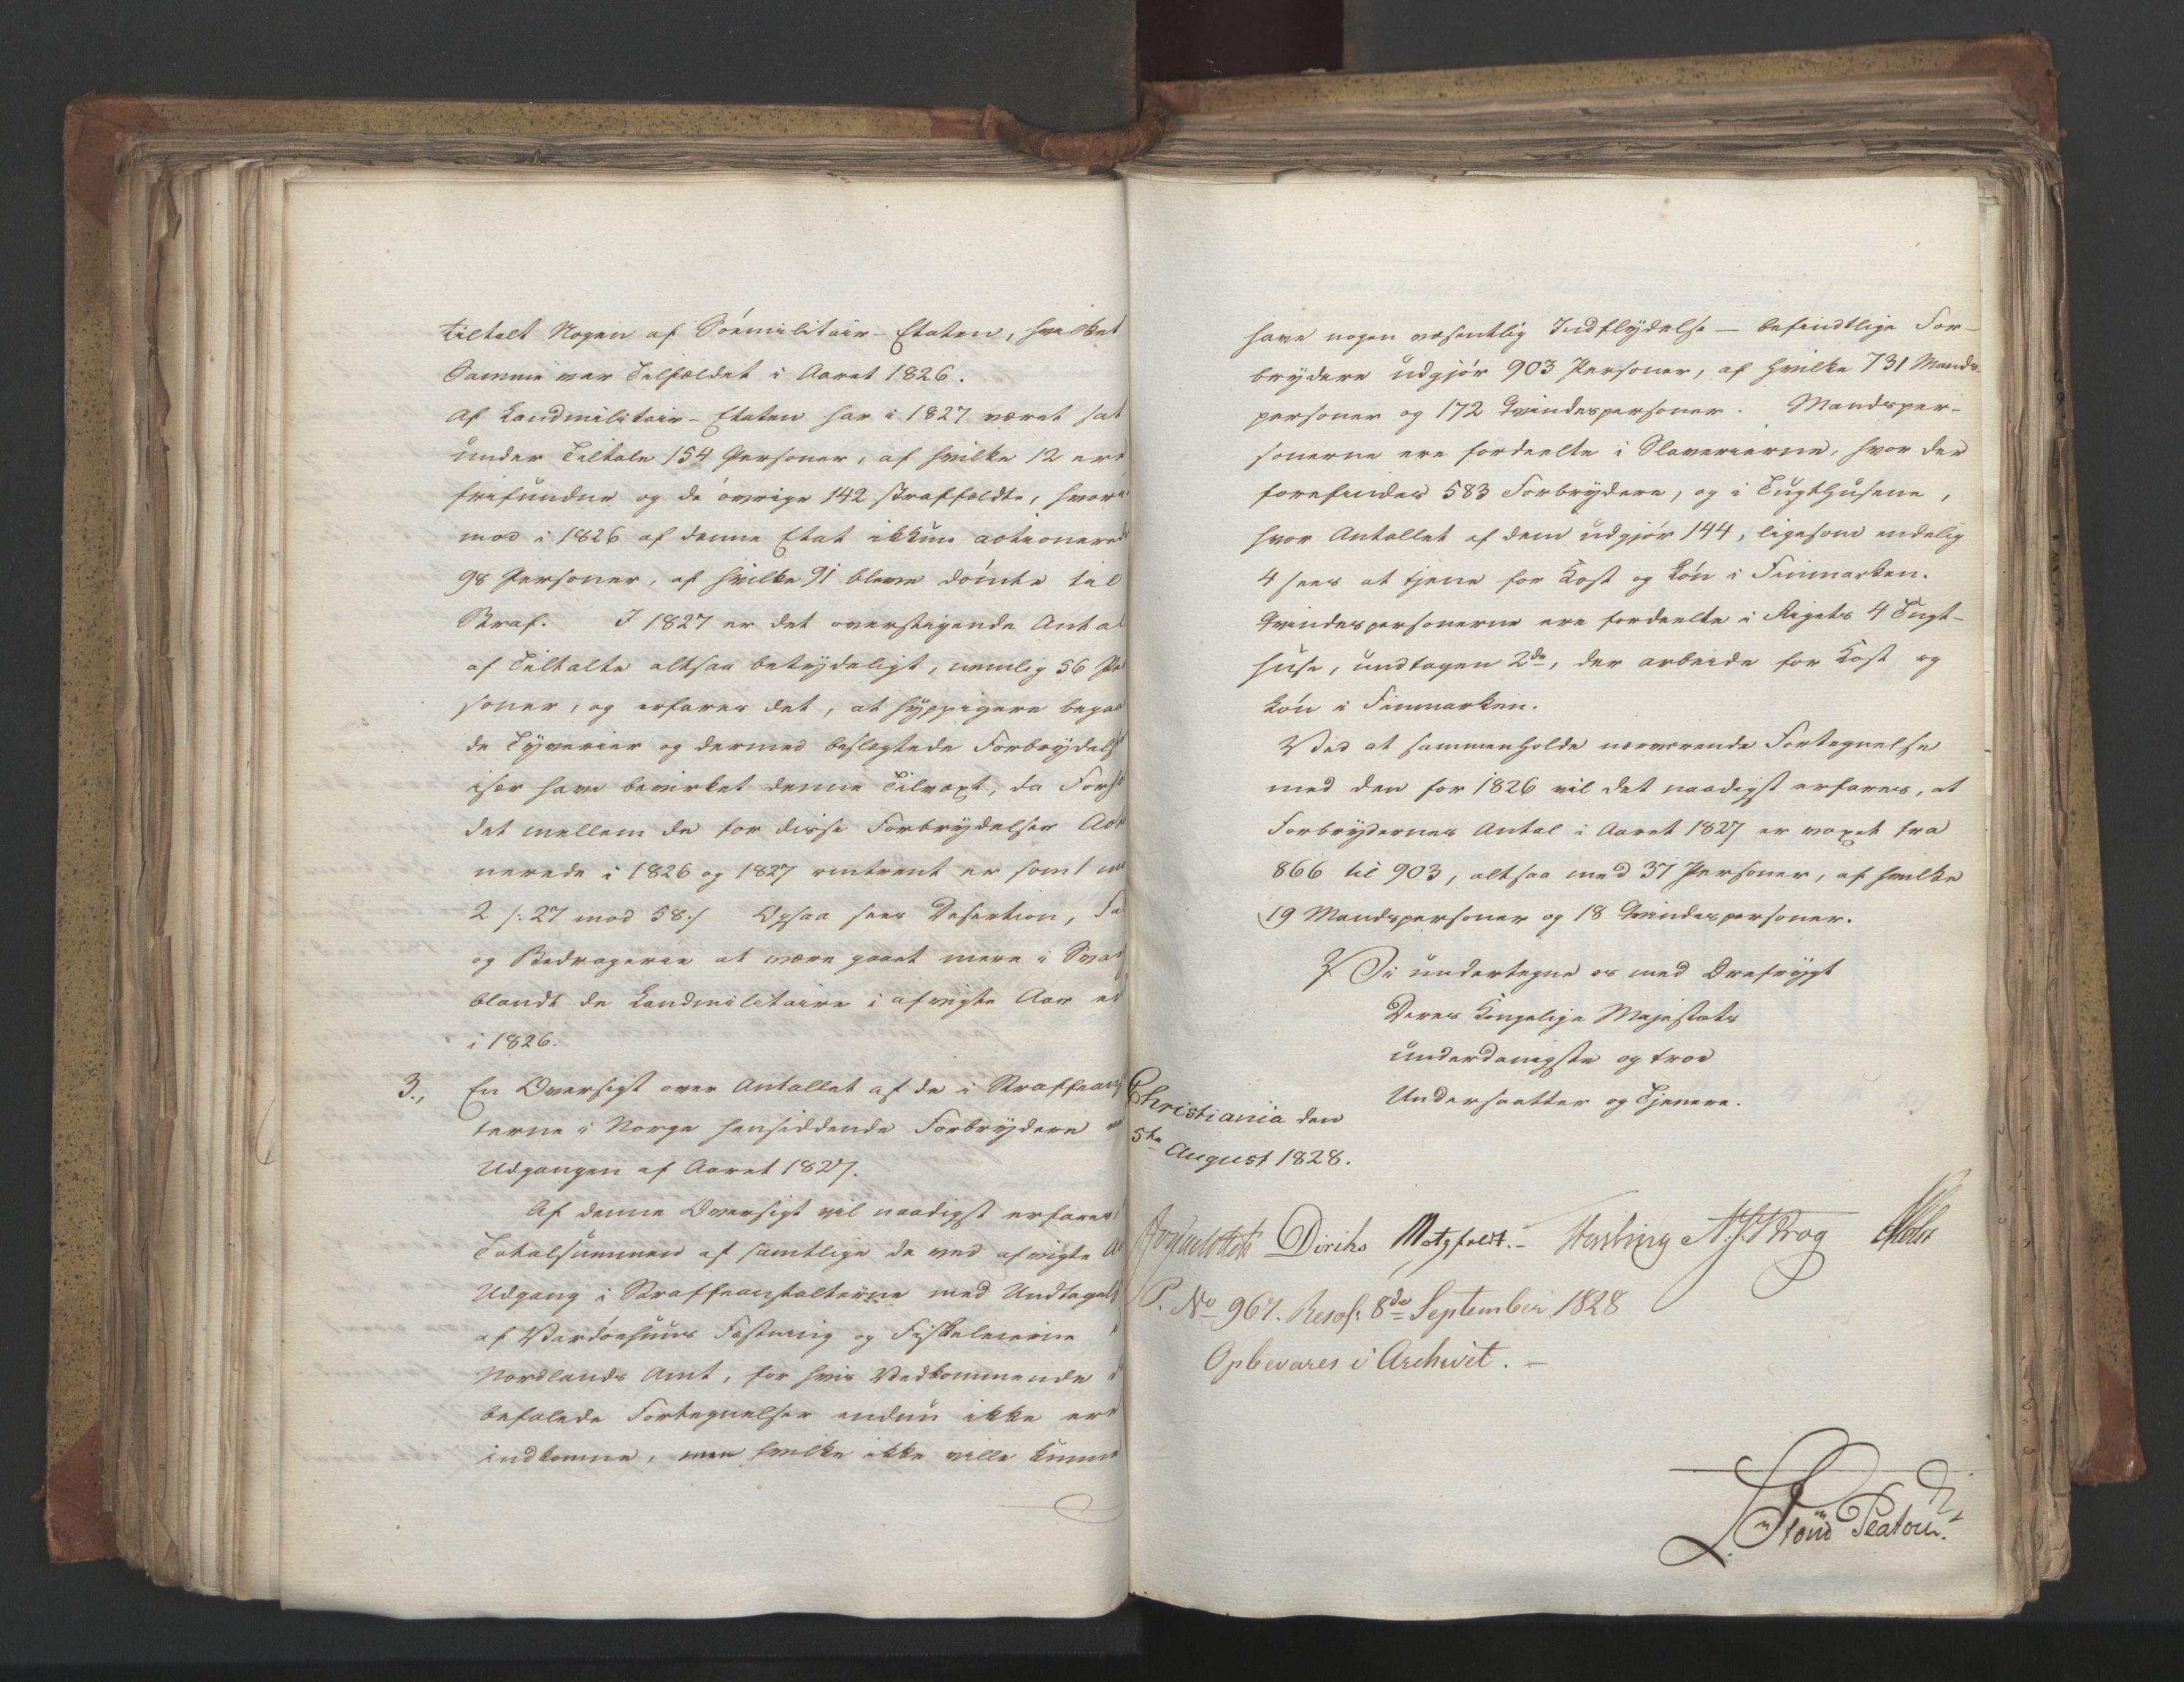 tiltalt Nogen af Sömilitair-Etaten, hvilket
Samme var Tilfældet i Aaret 1826.
Af Landmilitair-Etaten har i 1827 været sat
under Tiltale 154 Personer, af hvilke 12 ere
frifundne og de övrige 142 straffældte, hvori
mod i 1826 af denne Etat ikkun actionerede
98 Personer, af hvilke 91 bleve dömte til
Straf. I 1827 er det overstigende Antal
af Tiltalte altsaa betydeligt, nemlig 56 Per
soner, og erfares det, at hyppigere begaae
de Tyverier og dermed beslægtede Forbrydels
især have bevirket denne Tilvæxt, da Forhol
det mellem de for disse Forbrydelser Actio
nerede i 1826 og 1827 omtrent er som 1 mod
2 /: 27 mod 58:/ Ogsaa sees Desertion, Fal
og Bedragerie at være gaaet mere i Svang
blandt de Landmilitaire i afvigte Aar end
i 1826.
3., En Oversigt over Antallet af de i Straffeanst
terne i Norge hensiddende Forbrydere ved
Udgangen af Aaret 1827.
Af denne Oversigt vil naadigst erfares
Totalsummen af samtlige de ved afvigte Aa
Udgang i Straffeanstalterne med Undtagelse
af Vardöehuus Fæstning og Fiskeleierne i
Nordlands Amt, for hvis Vedkommende d
befalede Fortegnelser endnu ikke ere
indkomne, men hvilke ikke ville kunne
have nogen væsentlig Indflydelse – befindtlige For-
brydere udgjör 903 Personer, af hvilke 731 Mands-
personer og 172 Qvindespersoner. Mandsper-
sonerne ere fordeelte i Slaverierne, hvor der
forefindes 583 Forbrydere, og i Tugthusene,
hvor Antallet af dem udgjör 144, ligesom endelig
4 sees at tjene for Kost og Lön i Finmarken.
Qvindespersonerne ere fordeelte i Rigets 4 Tugt-
huse, undtagen 2de, der arbeide for Kost og
Lön i Finmarken.
Ved at sammenholde nærværende Fortegnelse
med den for 1826 vil det naadigst erfares, at
Forbrydernes Antal i Aaret 1827 er voxet fra
866 til 903, altsaa med 37 Personer, af hvilke
19 Mandspersoner og 18 Qvindespersoner.
Vi undertegne os med Ærefrygt
Deres Kongelige Majestæts
underdanigste og troe
Undersaatter og Tjenere.
Christiania den
5te August 1828.
Diriks Motzfeldt.- N. J. Krog
P. No 967. Resol: 8de September 1828
Opbevares i Archivet. –
Platou.